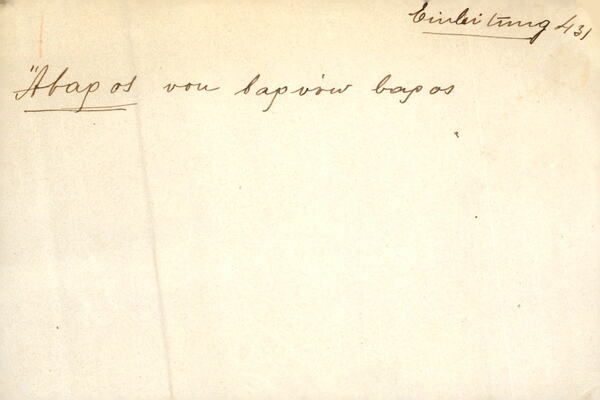 Einleitung 431
Ἄβαρος von βαρύνω βαρος